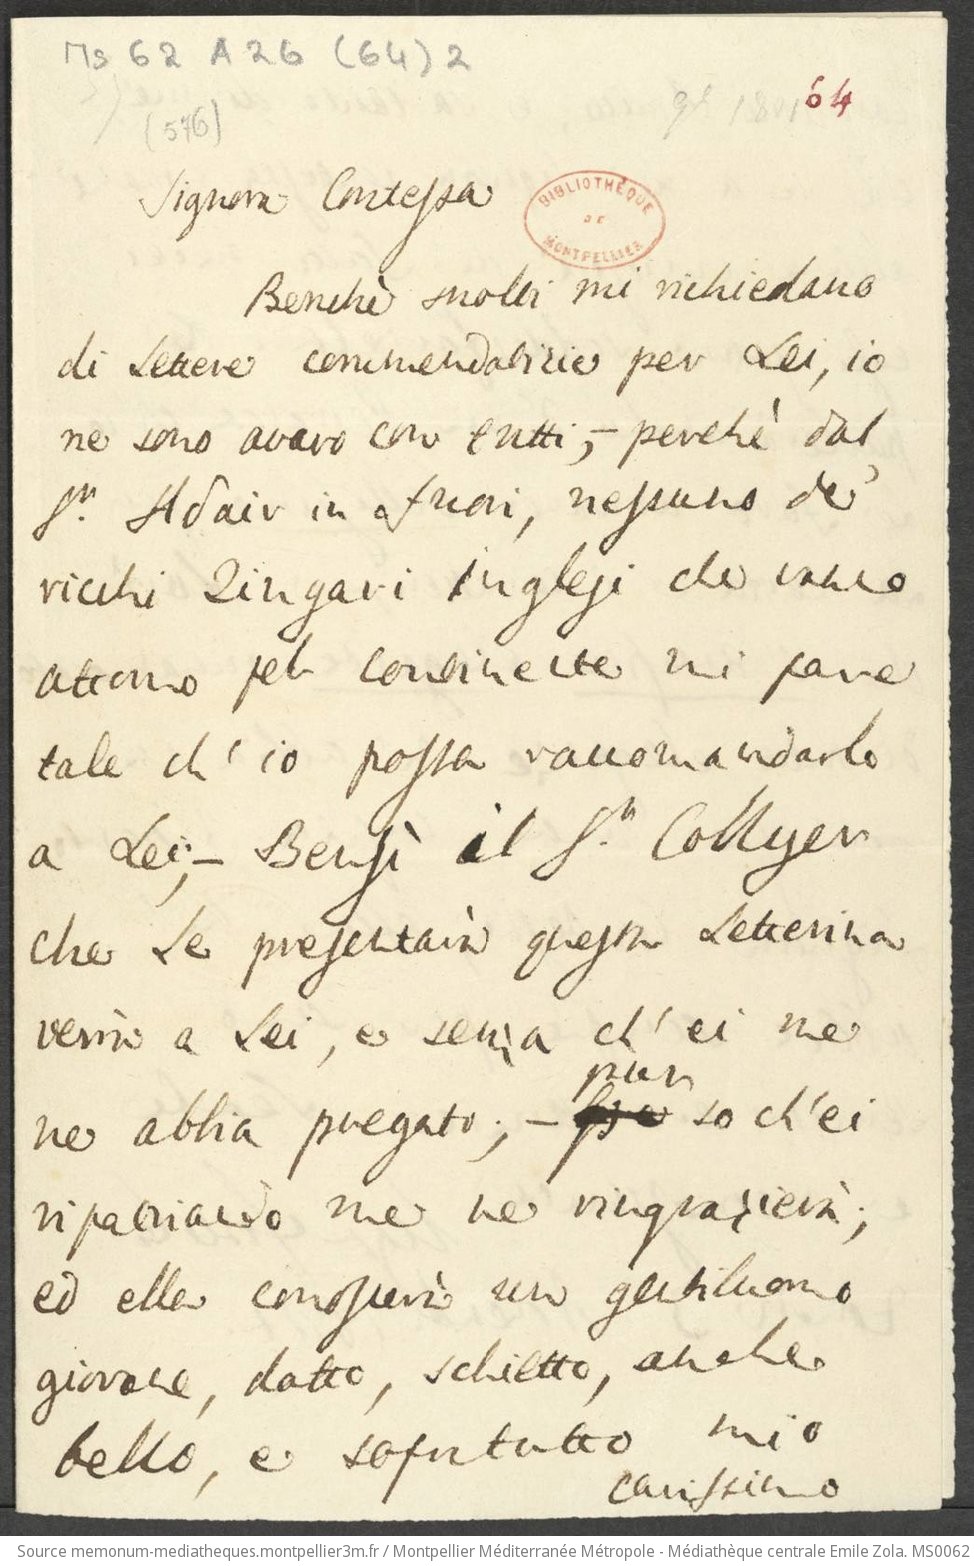 Ms 62 A 26 (64) 2
64
(576)
Signora Contessa
BIBLIOTHÉQUE
DE
MONTPELLIER
Benchè molti mi richiedano
di Lettere commendatizie per Lei, io
ne sono avaro con tutti; – perchè dal
Sr. Adair in fuori, nessuno de'
ricchi Zingari Inglesi che vanno
attorno pel continente mi pare
tale ch' io possa raccomandarlo
a Lei; – Bensì il Sr. Collyer
che Le presentarà questa Letterina
verrà a Lei, e senza ch' ei me
pur
ne abbia pregato; – so ch'ei
ripatriando me ne ringrazierà;
ed ella conoscerà un gentiluomo
giovane, dotto, schietto, anche
bello, e soprtutto mio
carissimo
Source memonum-mediatheques.montpellier3m.fr / Montpellier Méditerranée Métropole - Médiathèque centrale Emile Zola. MS0062